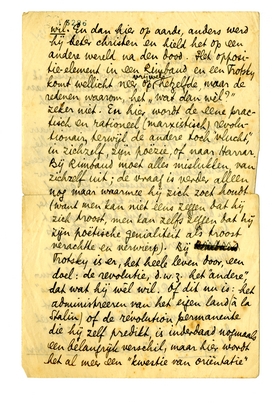 wil. En dan hier op aarde, anders werd
hij beter christen en hield het op een
andere wereld na den dood. Het opposi-
tie-element in een Rimbaud en een Trotsky
komt wellicht vrijwel neer op hetzelfde, maar de
redenen waarom, het "wat dan wèl?"
zeker niet. En hier wordt de eene prac-
tisch en rationeel (marxistisch) revolu-
tionair, terwijl de andere toch vlucht,
in zichzelf, zijn poëzie, of naar Harrar.
Bij Rimbaud moet alles mislukken van
zichzelf uit; de vraag is verder alleen
nog maar waarmee hij zich zoet houdt
(want men kan niet eens zeggen dat hij
zich troost, men kan zelfs zeggen dat hij
zijn poëtische genialiteit als troost
verachtte en verwierp). Bij
Trotsky is er, het heele leven door, een
doel: de revolutie, d.w.z. het "andere",
dat wat hij wèl wil. Of dit nu is: het
administreeren van het eigen land (à la
Stalin) of de revolution permanente
die hij zelf predikt, is inderdaad nogmaals
een belangrijk verschil, maar hier wordt
het al meer een "kwestie van oriëntatie"